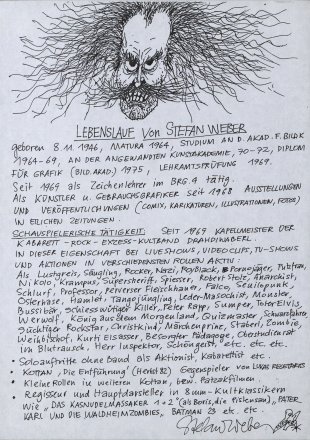 LEBENSLAUF von STEFAN WEBER
geboren 8.11.1946, MATURA 1964, STUDIUM AN D. AKAD. F. BILD. K
1964-69, AN DER ANGEWANDTEN KUNSTAKADEMIE, 70-72, DIPLOM
FÜR GRAFIK (BILD. AKAD.) 1975, LEHRAMTSPRÜFUNG 1969.
Seit 1969 als Zeichenlehrer im BRG.4 tätig.
Als KÜNSTLER u. GEBRAUCHSGRAFIKER seit 1968 AUSSTELLUNGEN
UND VERÖFFENTLICHUNGEN (COMIX, KARIKATUREN, ILLUSTRATIONEN, FOTOS)
IN ETLICHEN ZEITUNGEN.
SCHAUSPIELERISCHE TÄTIGKEIT: SEIT 1969 KAPELLMEISTER DER
KABARETT-ROCK-EXZESS-KULTBAND DRAHDIWABERL.
IN DIESER EIGENSCHAFT BEI LIVESHOWS, VIDEOCLIPS, TV-SHOWS
UND AKTIONEN IN VERSCHIEDENSTEN ROLLEN AKTIV:
Als Lustgreis, Säugling, Rocker, Nazi, Roy Black, Pornojäger, Putzfrau,
Nikolo, Krampus, Supersheriff, Spiesser, Robert Stolz, Anarchist,
Schlurf, Professor, Perverser Fleischhauer, Falco, Sexidlpunk,
Osterhase, Hamlet, Tangojüngling, Leder-Masochist, Monster,
Bussibär, Schiesswütiger Killer, Peter Rapp, Sumper, Toter Elvis,
Werwolf, König aus dem Morgenland, Quizmaster, Schwarzfahrer,
süchtiger Rockstar, Christkind, Märchenprinz, Staberl, Zombie,
Weihbischof, Kurt Eisbasser, Besorgter Pädagoge, Oberstudienrat
im Blutrausch, Herr Inspektor, Schein... etc. etc. etc.
• Soloauftritte ohne Band als Aktionist, Kabarettist etc.
• KOTTAN, "Die Entführung" (Herbst 82) Gegenspieler von LUKAS RESETARITS
• Kleine Rollen in weiteren Kottan, bzw. Patzakfilmen.
• Regisseur und Hauptdarsteller in 8mm-Kultklassikern
Wie "DAS KASNUDELMASSAKER 1+2" (als Boris, die Eislensau), PATER
KARL UND DIE WALDHEIMZOMBIES, BATMAN 23 etc. etc.
Stefan Weber